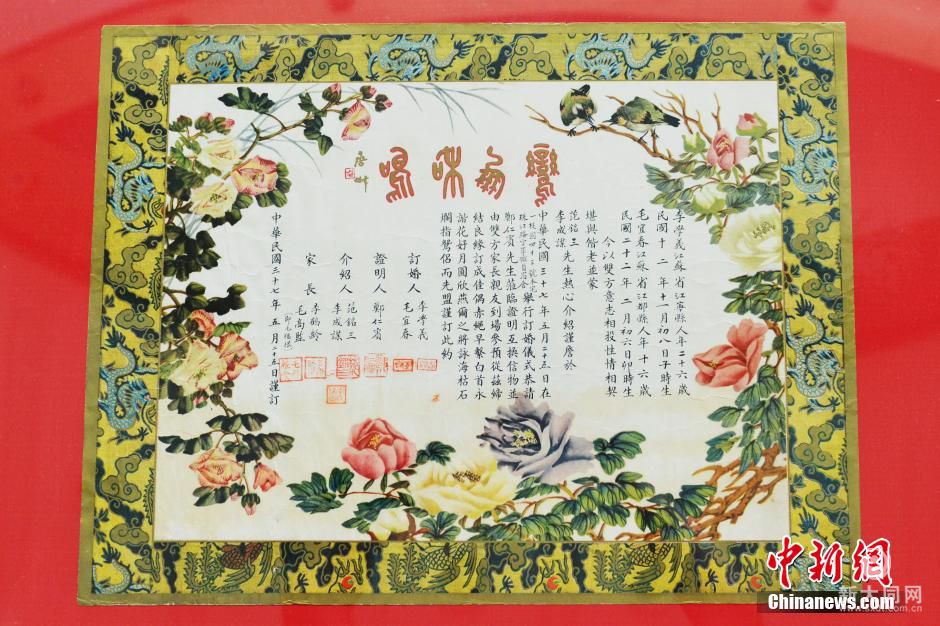 鸞翔和鳴
李學義江蘇省江寧縣人年二十六歲
民國十二年十一月初八日子時生
毛宜春江蘇省江都縣人年十六歲
民國二十二年二月初六日卯時生
今以雙方意志相投性情相契
堪與偕老並蒙
范銘三
李成謀先生熱心介紹謹詹於
中華民國三十七年五月二十五日在
舉行訂婚儀式恭請
鄭仁賓先生蒞臨證明互換信物並
由雙方家長親友到場參預從茲締
結良緣訂成佳偶赤繩早繫白首永
諧花好月圓欣燕爾之將詠海枯石
爛指鴛侶而先盟謹訂此約
訂婚人 李學義
毛宜春
證明人 鄭仁賓
介紹人 范銘三
李成謀
家長 李鶴齡
毛高鑑
中華民國三十七年五月二十五日謹訂
中新網
Chinanews.com
新大同网